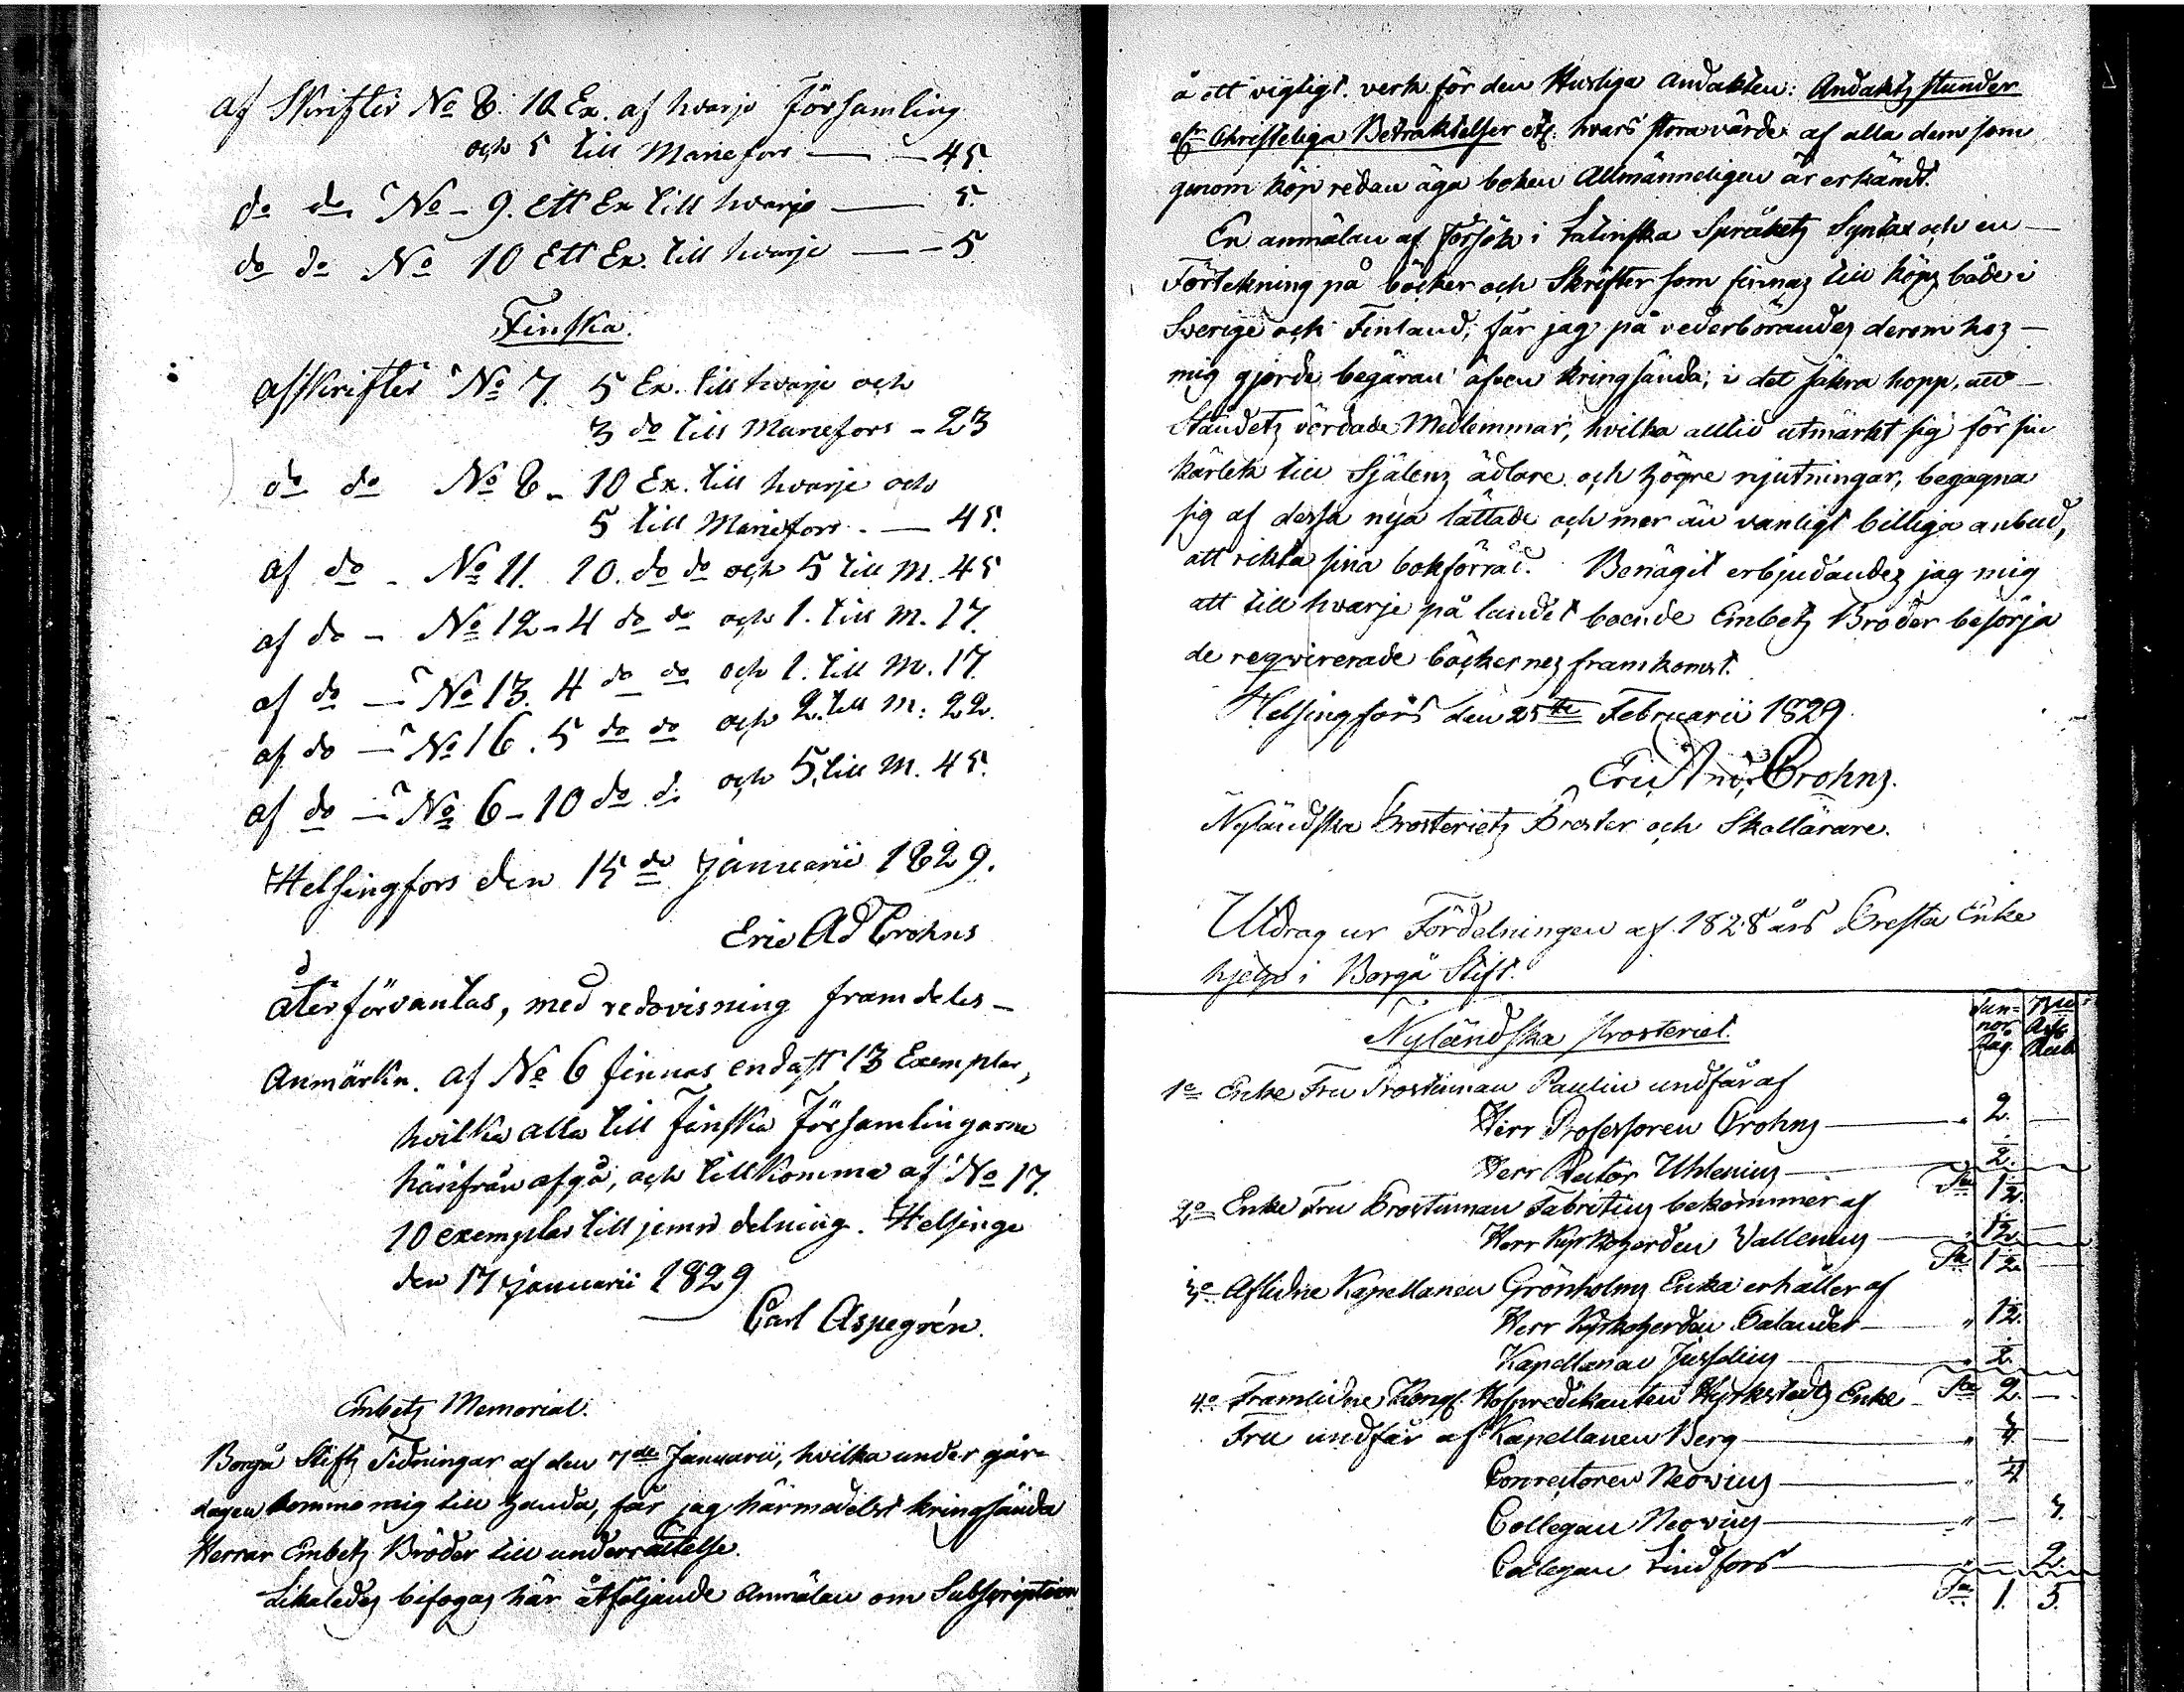 af Skrifter No 8. 10 Ex. af hvarje Församling
och 5 till Mariefors — 45.
do do No 9. ett Ex till hvarje — 5.
do do No 10 Ett Ex. till hvarje — 5
Finska.
af Skrifter No 7. 5 Ex. till hvarje och
3 do till Mariefors - 23
do do No 8 - 10 Ex. till hvarje och
5 till Mariefors. — 45.
af do - No 11. 10. do do och 5 till M. 45
af do - No 12 - 4 do do och 1. till M. 17.
af do - No 13. 4 do do och 1. till M. 17.
af do - No 16. 5 do do och 2. till M. 22.
af do - No 6 - 10 do do och 5. till M. 45.
Helsingfors den 15de Januarii 1829.
Eric Ad Crohns
återförväntas, med redovisning framdeles -
Anmärkn. af No 6 finnas endast 13 Exemplar,
hvilka alla till Finska Församlingarne
härifrån afgå, och tillkomma af No 17.
10 exemplar till jemn delning. Helsinge
den 17 Januarii 1829
Carl Aspegrén.
Embets Memorial.
Borgå Stifts Tidningar af den 7de Januarii, hvilka under går-
dagen kommo mig till handa, får jag härmedelst kringsända
Herrar Embets Bröder till underrättelse.
Likaledes bifogas här åtföljande Anmälan om Subscription
å ett vigtigt verk för den Husliga andakten: Andakts stunder
Christeliga Betraktelser etc. hvars stora värde af alla dem som
genom köp redan äga boken Allmänneligen är erkändt.
En anmälan af Försök i Latinska Språkets Syntax och en
Förtekning på böcker och Skrifter som finnas till köps både i
Sverige och Finland, får jag på vederbörandes derom hos
mig gjorde begäran äfven kringsända, i det säkra hopp, att
Ståndets vördade Medlemmar, hvilka alltid utmärkt sig för sin
kärlek till Själens ädlare och högre njutningar, begagna
sig af dessa nya lättade och mer än vanligt billiga anbud,
att rikta sina bokförråd. Benägit erbjudandes jag mig
att till hvarje på landet boende Embets Broder besörja
de reqvirerade böckernes framkomst.
Helsingfors den 25te Februarii 1829.
Eric Crohns.
Nyländska Prosteriets Prester och Skollärare.
Utdrag ur Fördelningen af 1828 års Presta Enke
hjelp i Borgå Stift.
Nyländska Prosteriet.
Tun-
nor
Råg.
1o Enke Fru Prostinnan Paulin undfår af
Herr Professoren Crohns — 2.
Herr Rector Uhlenius
2o Enke Fru Prostinnan Fabritius bekommer af
Herr Kyrkoherden Vallenius
3o Aflidne Kapellanen Grönholms Enka erhåller af
Herr Kyrkoherden
Kapellanen
4o Framlidne Kongl. Hofpredikanten Kyrkstedts Enke Sa 2.
Fru undfår af Kapellanen Berg
Conrectoren Neovius
Collegan Neovius — 3.
Collegan Lindfors — 2.
Sa 1. 5.